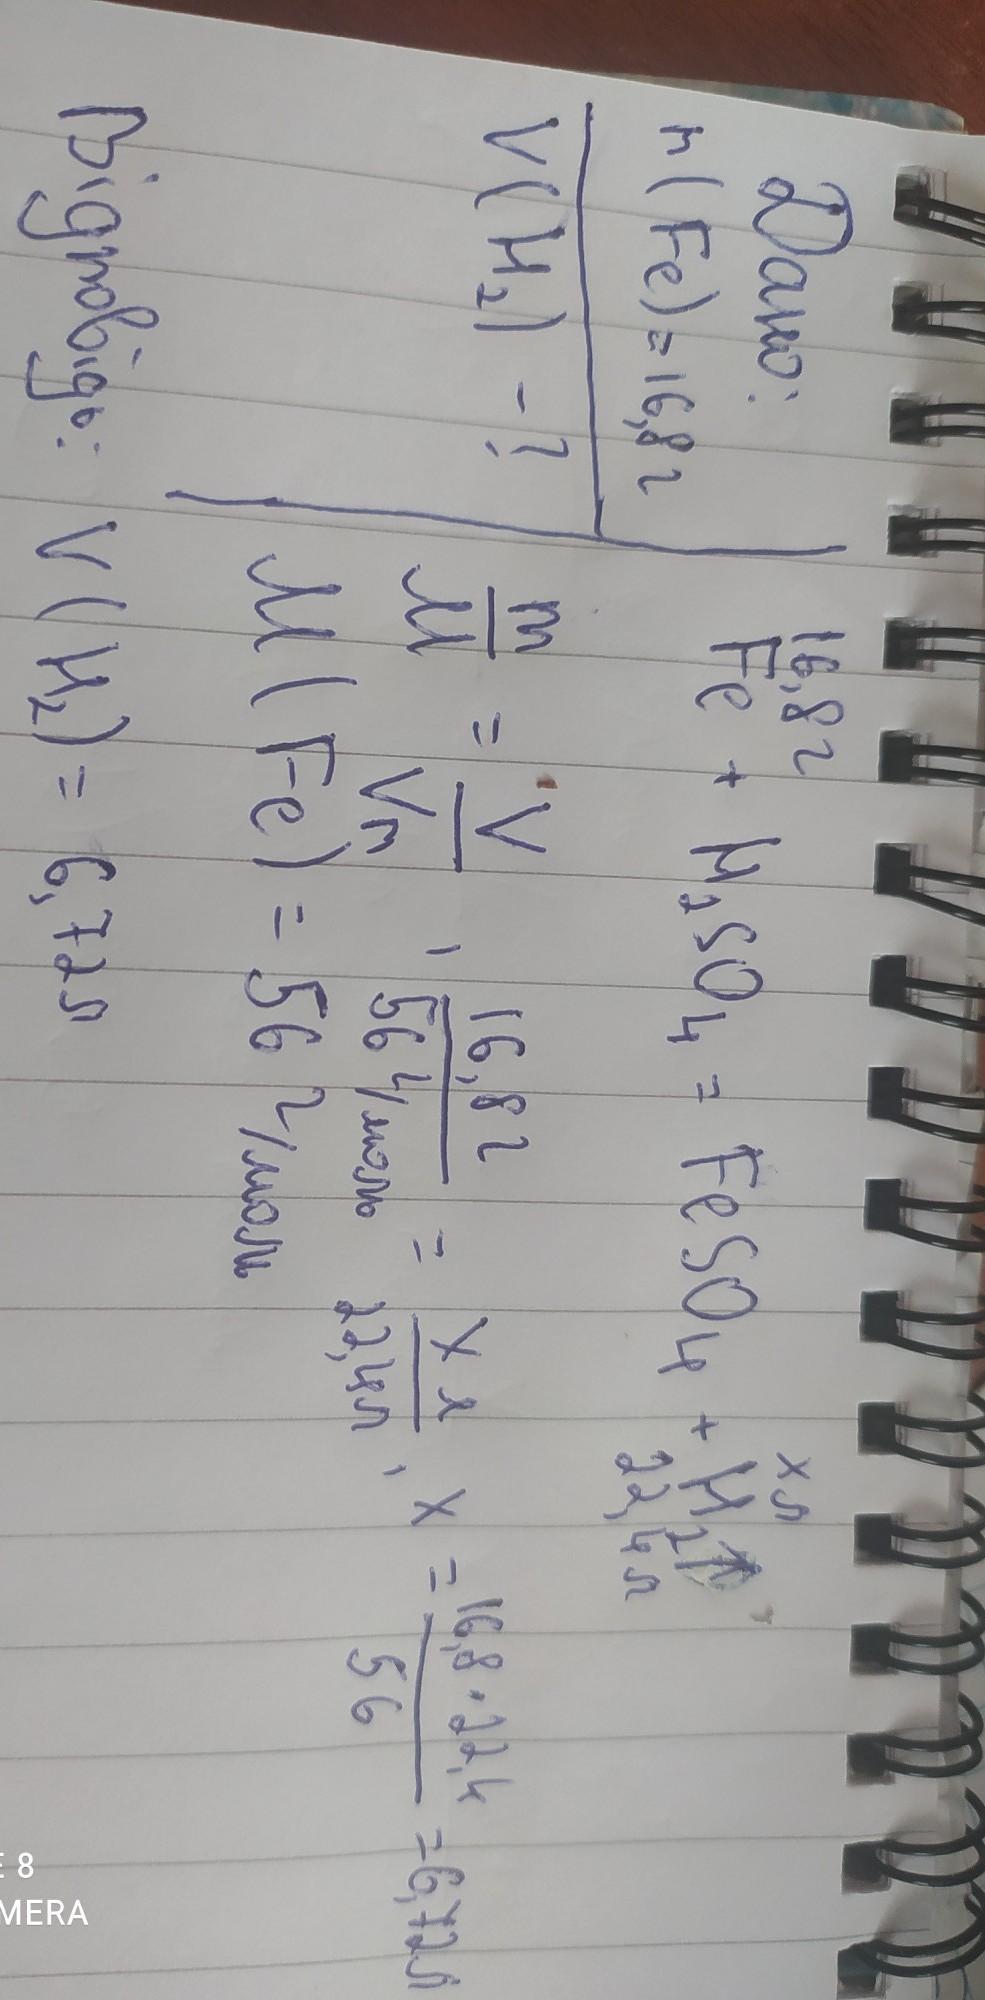 Дано:
m(Fe)=16,8г
V(H₂) - ?
16,8г хл
Fe + H₂SO₄ = FeSO₄ + H₂↑
22,4л
m/M = V/Vm , 16,8г/56 г/моль = х л/22,4л , х = 16,8·22,4/56 = 6,72л
M(Fe) = 56 г/моль
Відповідь: V(H₂) = 6,72л
E 8
MERA